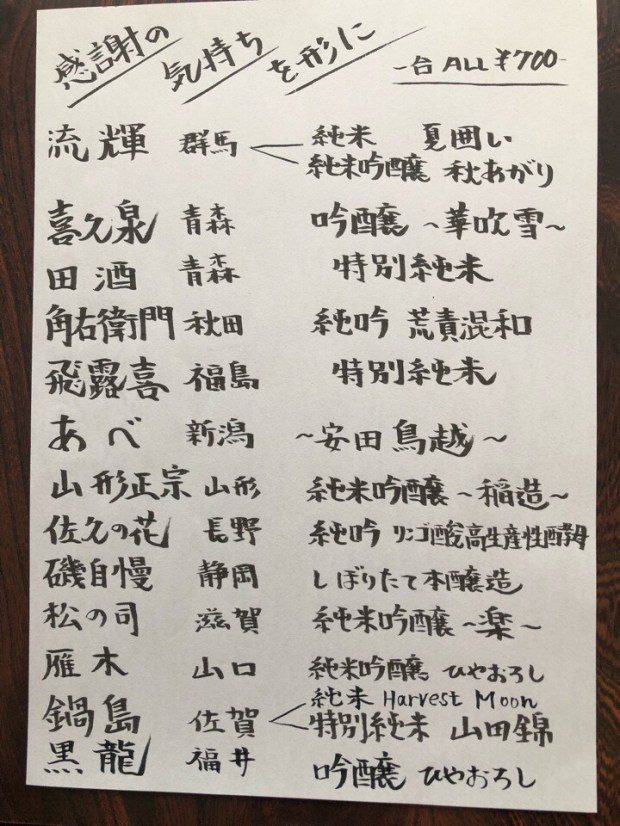 感謝の気持ちを形に 一合ALL¥700-
流輝 群馬 純米 夏囲い
純米吟醸 秋あがり
喜久泉 青森 吟醸 ~華吹雪~
田酒 青森 特別純米
角右衛門 秋田 純吟 荒責混和
飛露喜 福島 特別純米
あべ 新潟 ~安田鳥越~
山形正宗 山形 純米吟醸 ~稲造~
佐久の花 長野 純吟 リンゴ酸高生産性酵母
磯自慢 静岡 しぼりたて本醸造
松の司 滋賀 純米吟醸 ~楽~
雁木 山口 純米吟醸 ひやおろし
鍋島 佐賀 純米 Harvest Moon
特別純米 山田錦
黒龍 福井 吟醸 ひやおろし